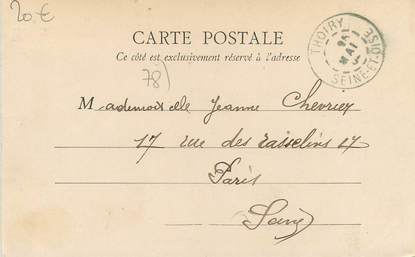 20 €
CARTE POSTALE
Ce côté est exclusivement réservé à l'adresse
78)
Mademoiselle Jeanne Chevrier
17 rue des 17
Paris
Seine
THOIRY
MAI
SEINE-ET-OISE